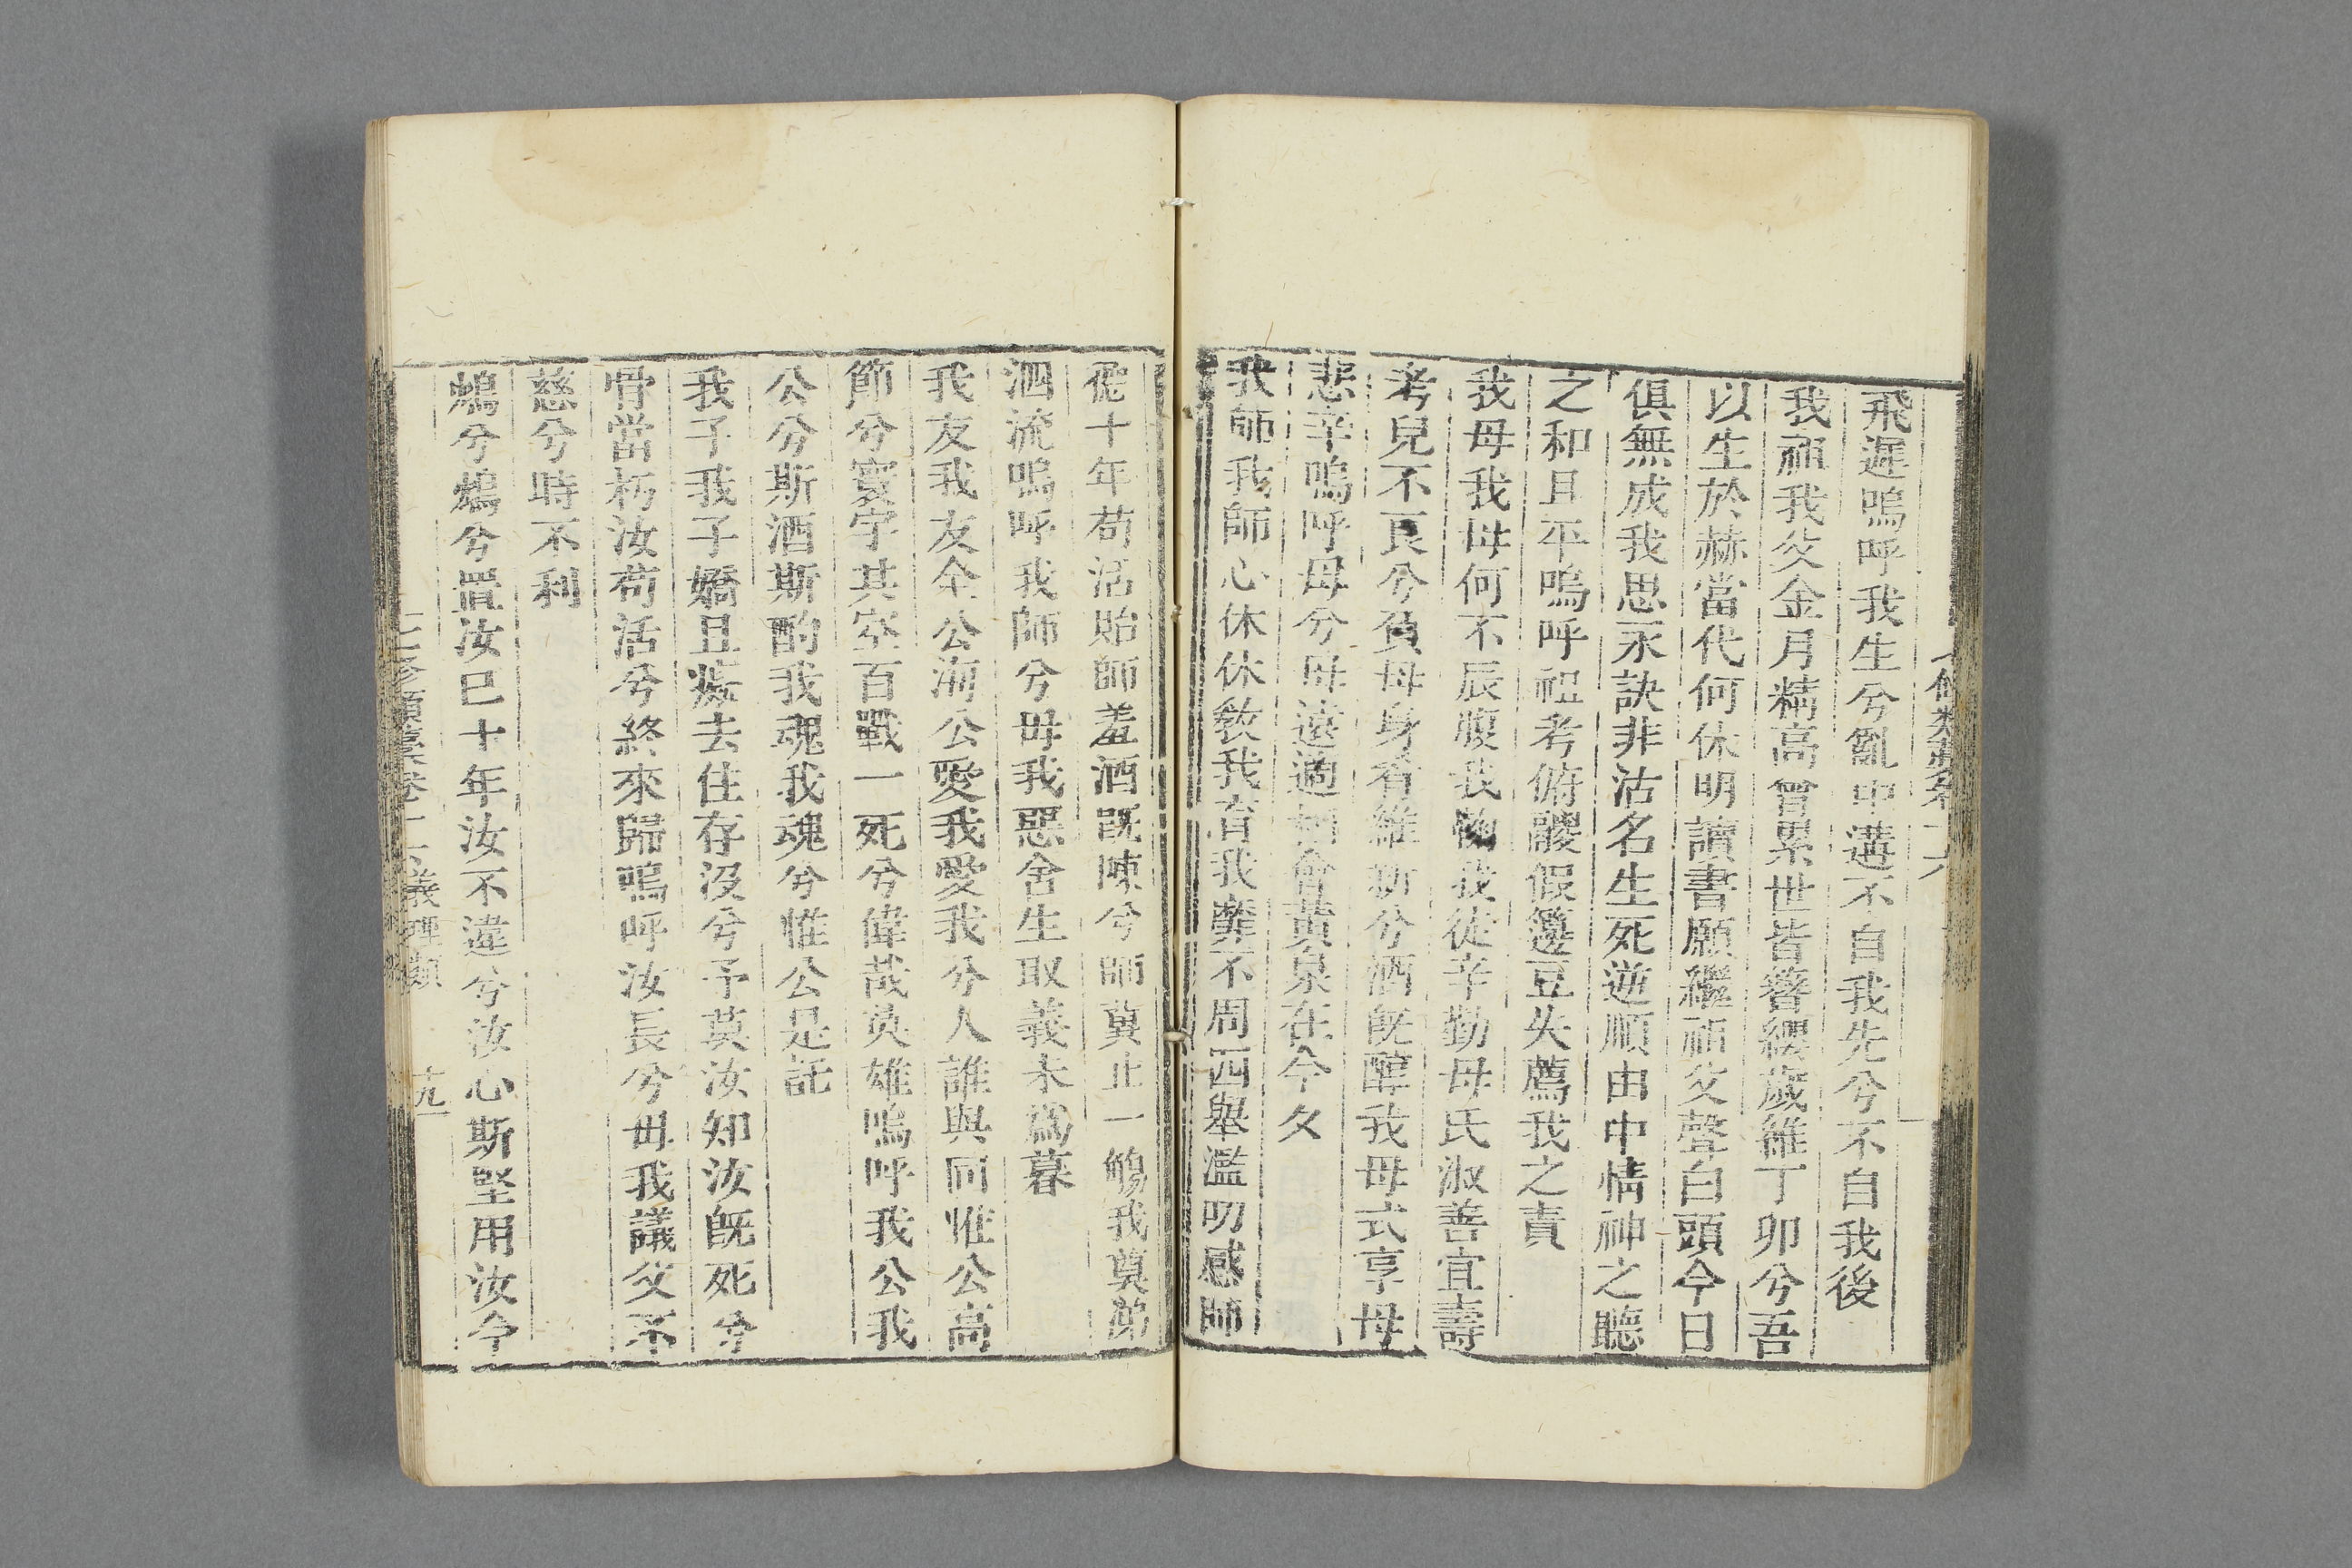 飛遲嗚呼我生兮亂中遘不自我先兮不自我後
我祖我父金月精高曾累世皆簪纓歲維丁卯兮吾
以生於赫當代何休明讀書願繼祖父聲白頭今日
俱無成我思永訣非沽名生死逆順由中情神之聽
之和且平嗚呼祖考俯謖假籩豆失薦我之責
我母我母何不辰腹我鞠我徒辛勤母氏淑善宜壽
考兒不良兮負母身肴維新兮酒旣醇我母式享母
悲辛嗚呼母兮母遠適相會黃泉在今夕
我師我師心休休敎我育我靡不周四舉濫叨感師
十年苟活貽師羞酒旣陳兮師冀止一觴我奠涕
泗流嗚呼我師兮毋我惡舍生取義未爲暮
我友我友全公海公愛我愛我兮人誰與同惟公高
節兮寰宇其空百戰一死兮偉哉英雄嗚呼我公我
公兮斯酒斯酌我魂我魂兮惟公是託
我子我子嬌且癡去住存没兮予莫汝知汝旣死兮
骨當朽汝苟活兮終來歸嗚呼汝長兮毋我議父不
慈兮時不利
鴆兮鴆兮置汝已十年汝不違兮汝心斯堅用汝今
七修類藁卷十六 義理類 十九